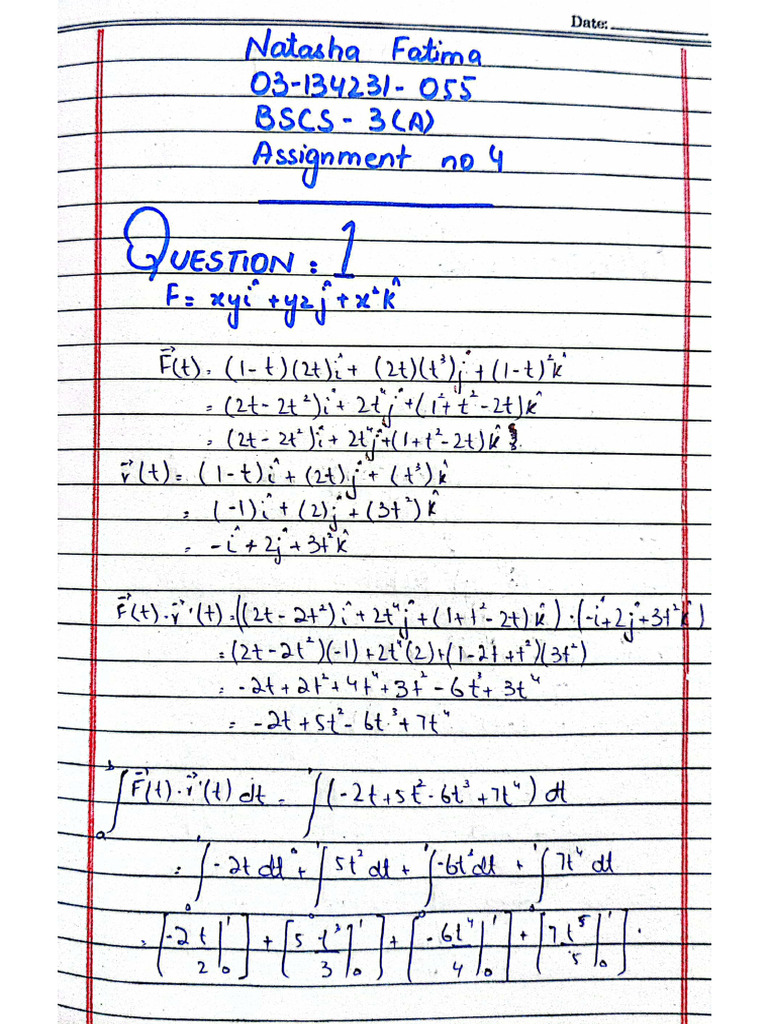 Date:
Natasha Fatima
03-134231-055
BSCS - 3(A)
Assignment no 4
QUESTION: 1
F = xyî + yzĵ + x²k̂
F⃗(t) = (1-t)(2t)î + (2t)(t³)ĵ + (1-t)²k̂
= (2t-2t²)î + 2t⁴ĵ + (1²+t²-2t)k̂
= (2t-2t²)î + 2t⁴ĵ + (1+t²-2t)k̂
r⃗(t) = (1-t)î + (2t)ĵ + (t³)k̂
= (-1)î + (2)ĵ + (3t²)k̂
= -î + 2ĵ + 3t²k̂
F⃗(t)·r⃗'(t) = ((2t-2t²)î + 2t⁴ĵ + (1+t²-2t)k̂)·(-î+2ĵ+3t²k̂)
= (2t-2t²)(-1) + 2t⁴(2) + (1-2t+t²)(3t²)
= -2t + 2t² + 4t⁴ + 3t² - 6t³ + 3t⁴
= -2t + 5t² - 6t³ + 7t⁴
∫ₐᵇ F⃗(t)·r⃗'(t) dt = ∫¹(-2t+5t²-6t³+7t⁴) dt
= ∫₀¹ -2t dt + ∫₀¹ 5t² dt + ∫₀¹ -6t³ dt + ∫₀¹ 7t⁴ dt
= [-2t/2 |₀¹] + [5 t³/3 |₀¹] + [-6t⁴/4 |₀¹] + [7t⁵/5 |₀¹].